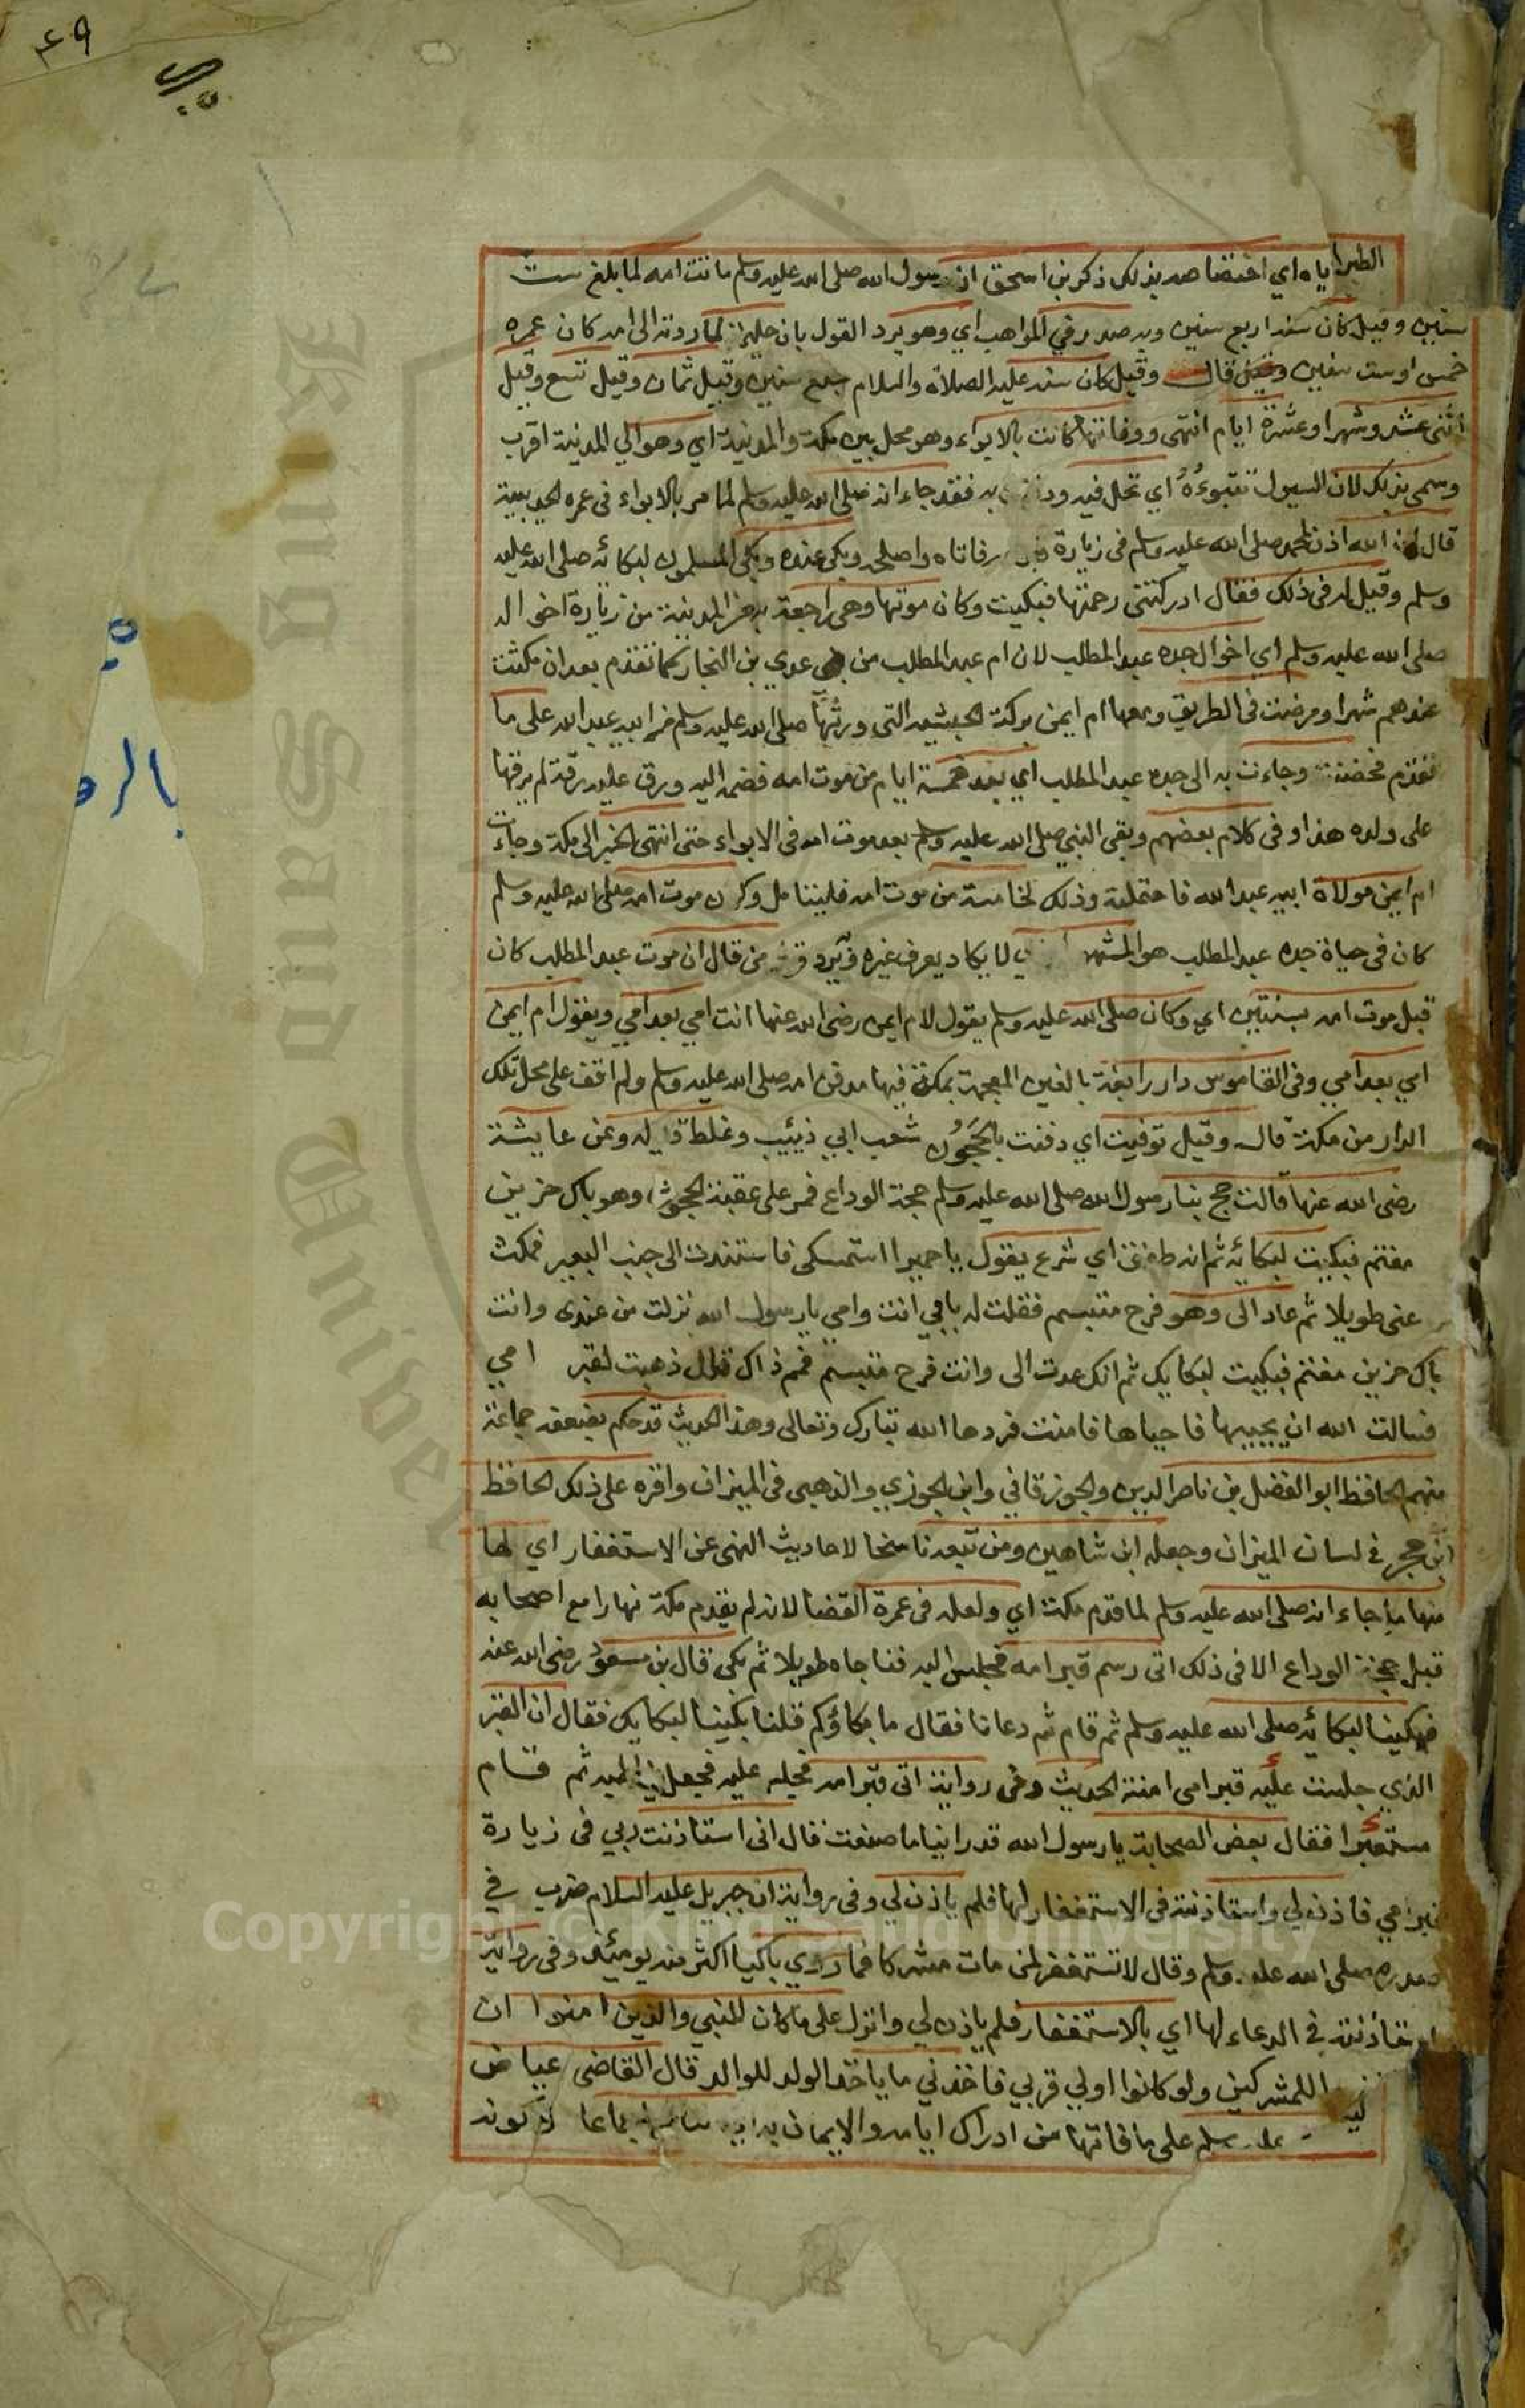 ٤٩
بالر
الطير اياه اي اختصاصه بذلك ذكر بن اسحق ان رسول الله صلى الله عليه وسلم ماتت امه لما بلغ ست
سنين وقيل كان سنه اربع سنين وبه صدر في المواهب اي وهو يرد القول بان حليمة لما ردته الى امه كان عمره
خمس او ست سنين قال وقيل كان سنه عليه الصلاة والسلام سبع سنين وقيل ثمان وقيل تسع وقيل
اثنى عشر وشهرا وعشرة ايام انتهى ووفاتها كانت بالابواء وهو محل بين مكة والمدينة اي وهو الي المدينة اقرب
وسمى بذلك لان السيول تتبوءه اي تحل فيه به فقد جاء انه صلى الله عليه وسلم لما مر بالابواء فى عمره الحديبية
قال ان الله اذن لمحمد صلى الله عليه وسلم فى زيارة فاتاه واصلحه وبكى عنده وبكى المسلمون لبكائه صلى الله عليه
وسلم وقيل له فى ذلك فقال ادركتنى رحمتها فبكيت وكان موتها وهى راجعة به من المدينة من زيارة اخواله
صلى الله عليه وسلم اي اخوال جده عبد المطلب لان ام عبد المطلب من بنى عدي بن النجار كما تقدم بعد ان مكثت
عندهم شهرا ومرضت فى الطريق ومعها ام ايمن بركة الحبشيه التي ورثها صلى الله عليه وسلم من ابيه عبد الله على ما
تقدم فحضنته وجاءت به الى جده عبد المطلب اي بعد خمسة ايام من موت امه فضمه اليه ورق عليه رقة لم يرقها
على ولده هذا وفى كلام بعضهم وبقى النبي صلى الله عليه وسلم بعد موت امه فى الابواء حتى انتهى الخبر الى مكة وجات
ام ايمن مولاة ابيه عبد الله فاحتملته وذلك لخامسة من موت امه فليتامل وكون موت امه صلى الله عليه وسلم
كان فى حياة جده عبد المطلب هو المشهور لا يكاد يعرف غيره ويرد من قال ان موت عبد المطلب كان
قبل موت امه بسنتين اي وكان صلى الله عليه وسلم يقول لام ايمن رضى الله عنها انت امي بعد امي ويقول ام ايمن
امي بعد امي وفى القاموس دار رابغة بالغين المعجمة بمكة فيها مدفن امه صلى الله عليه وسلم ولم اقف على محل تلك
الدار من مكة قال وقيل توفيت اي دفنت بالحجون شعب ابي ذئيب وغلط قايله وعن عايشة
رضى الله عنها قالت حج بنا رسول الله صلى الله عليه وسلم حجة الوداع فمر على عقبة الحجون وهو باك حزين
مغتم فبكيت لبكائه ثم انه طفق اي شرع يقول يا حميرا استمسكى فاستندت الى جنب البعير فمكث
عنى طويلا ثم عاد الى وهو فرح متبسم فقلت له بابي انت وامي يا رسول الله نزلت من عندى وانت
باك حزين مغتم فبكيت لبكايك ثم انك عدت الى وانت فرح متبسم فمم ذاك قال ذهبت لقبر امي
فسالت الله ان يحييها فاحياها فامنت فردها الله تبارك وتعالى وهذا الحديث قد حكم بضعفه جماعة
منهم الحافظ ابو الفضل بن ناصر الدين والجوزقاني وابن الجوزي والذهبى فى الميزان واقره على ذلك الحافظ
ابن حجر في لسان الميزان وجعله ابن شاهين ومن تبعه ناسخا لاحاديث النهى عن الاستغفار اي لها
منها ما جاء انه صلى الله عليه وسلم لما قدم مكة اي ولعله فى عمرة القضا لانه لم يقدم مكة نهارا مع اصحابه
قبل حجة الوداع الا فى ذلك اتى رسم قبر امه فجلس اليه فناجاه طويلا ثم بكى قال بن مسعود رضى الله عنه
فبكينا لبكائه صلى الله عليه وسلم ثم قام ثم دعانا فقال ما بكاؤكم قلنا بكينا لبكايك فقال ان القبر
الذي جلست عليه قبر امى امنة الحديث وفى رواية اتى قبر امه فجلس عليه فجعل اليه ثم قام
مستعبرا فقال بعض الصحابة يا رسول الله قد راينا ما صنعت قال انى استاذنت ربي فى زيارة
قبر امي فاذن لي واستاذنته فى الاستغفار لها فلم ياذن لي وفى رواية ان جبريل عليه السلام ضرب في
صدره صلى الله عليه وسلم وقال لا تستغفر لمن مات مشركا فما روي باكيا اكثر منه يومئذ وفى رواية
استاذنته في الدعاء لها اي بالاستغفار فلم ياذن لي وانزل على ما كان للنبي والذين امنوا ان
للمشركين ولو كانوا اولي قربي فاخذني ما ياخذ الولد للوالد قال القاضى عياض
وسلم على ما فاتها من ادراك ايامه والايمان به